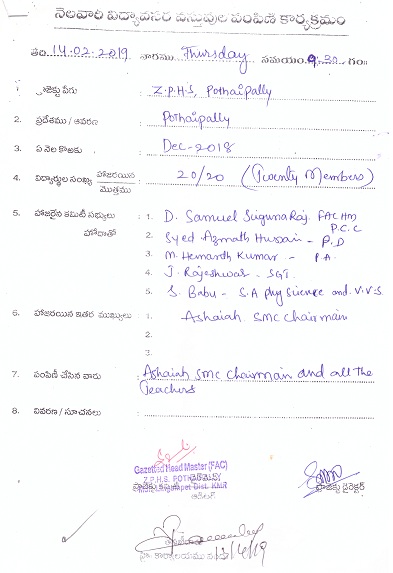 నెలవారి విద్యావసర వస్తువుల పంపిణి కార్యక్రమం
తేది 14-02-2019 వారము Thursday సమయం 9-30 గం॥
1. ప్రాజెక్టు పేరు : Z.P.H.S, Pothaipally
2. ప్రదేశము / ఆవరణ : Pothaipally
3. ఏ నెల కొఱకు : Dec-2018
4. విద్యార్థుల సంఖ్య హాజరయిన / మొత్తము : 20/20 (Twenty Members)
5. హాజరైన కమిటీ సభ్యులు : 1. D. Samuel Suguna Raj. FAC HM
హోదాతో P.C.C
2. Syed Azmath Hussain - P.D
3. M. Hemanth Kumar - P.A
4. J. Rajeshwar - SGT.
5. S. Babu - S.A phy science and V.V.S
6. హాజరయిన ఇతర ముఖ్యులు : 1. Ashaiah. SMC chairman
2.
3.
7. పంపిణీ చేసిన వారు : Ashaiah, SMC chairman and all the
Teachers
8. వివరణ / సూచనలు :
Gazetted Head Master (FAC)
Z.P.H.S. POTHAIPALLY
Dist. KMR
ప్రాజెక్టు డైరెక్టర్
12/4/19